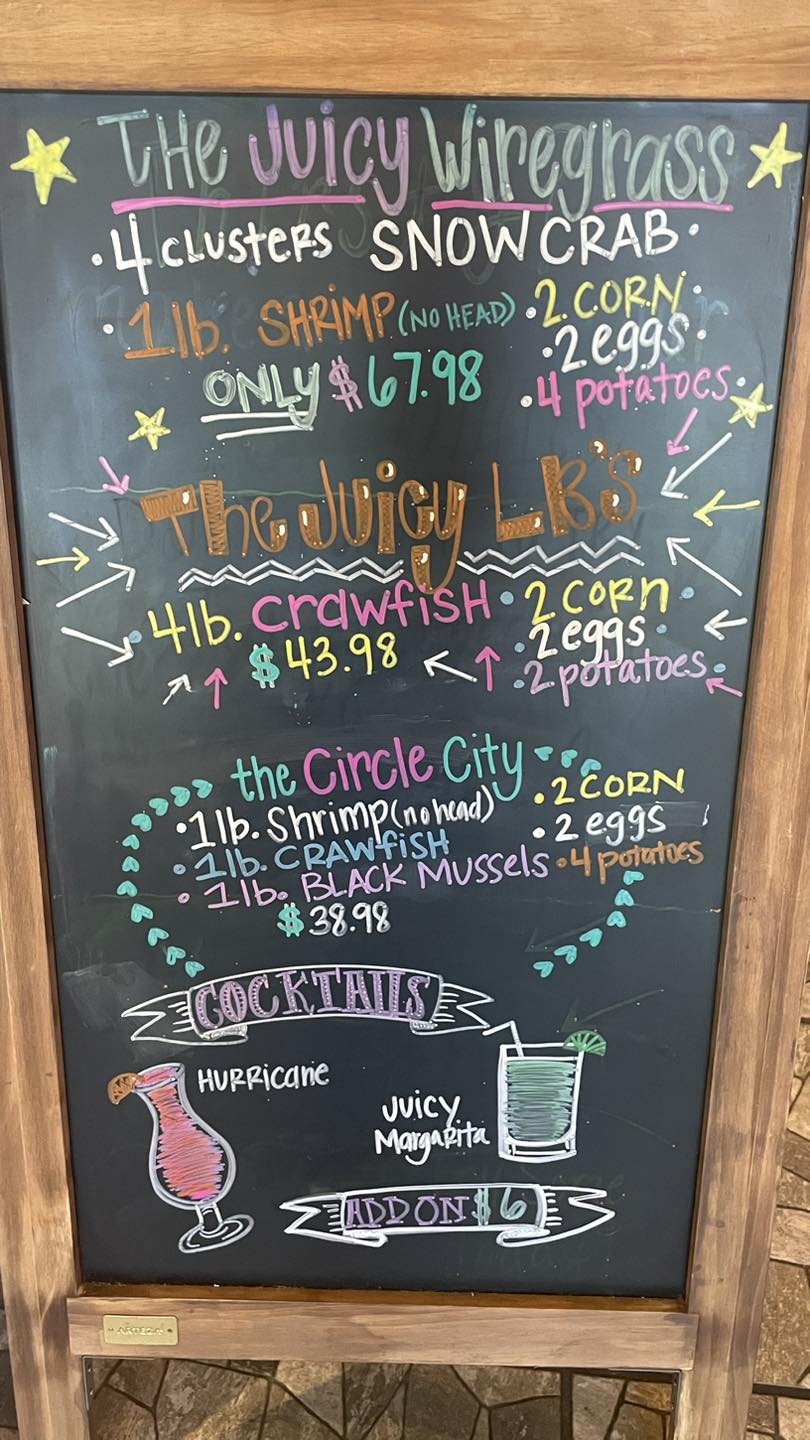 THE JUICY WIREGRASS
• 4 CLUSTERS SNOW CRAB •
• 1 lb. SHRIMP (NO HEAD)
• 2 CORN
• 2 eggs
• 4 potatoes •
ONLY $67.98
The Juicy LB'S
4 lb. crawfish
$43.98
• 2 CORN •
• 2 eggs •
• 2 potatoes •
the Circle City
• 1 lb. Shrimp (no head)
• 1 lb. CRAWFISH
• 1 lb. BLACK Mussels
$38.98
• 2 CORN
• 2 eggs
• 4 potatoes
COCKTAILS
HURRicane
JUICY
MargaRita
ADD ON $6
ARTEZA